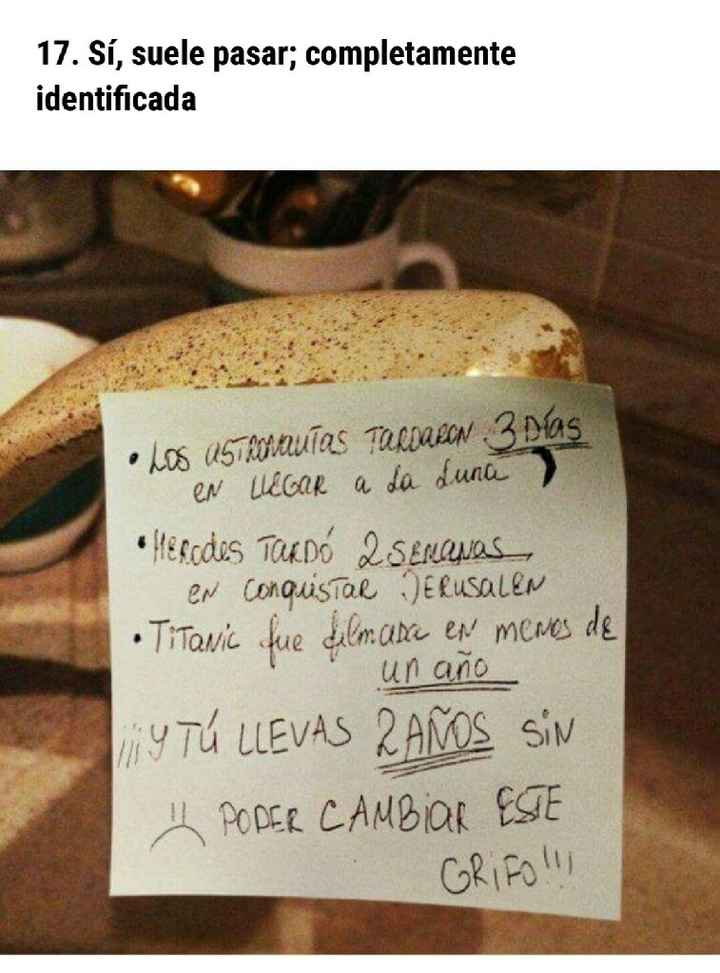 17. Sí, suele pasar; completamente
identificada
• Los astronautas tardaron 3 Días
en llegar a la Luna
• Herodes tardó 2 semanas
en conquistar Jerusalen
• Titanic fue filmada en menos de
un año
¡¡¡Y TÚ LLEVAS 2 AÑOS SIN
PODER CAMBIAR ESTE
GRIFO!!!